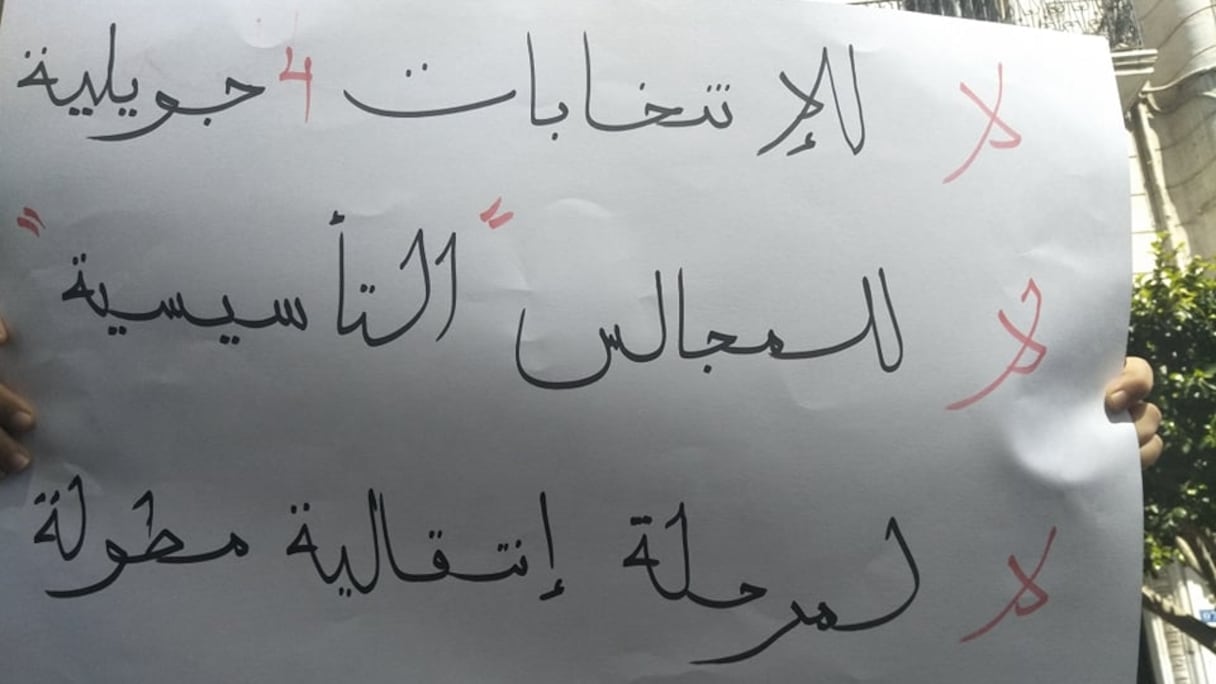 لا للإنتخابات 4 جويلية
لا للمجالس "التأسيسية"
لا لمرحلة إنتقالية مطولة